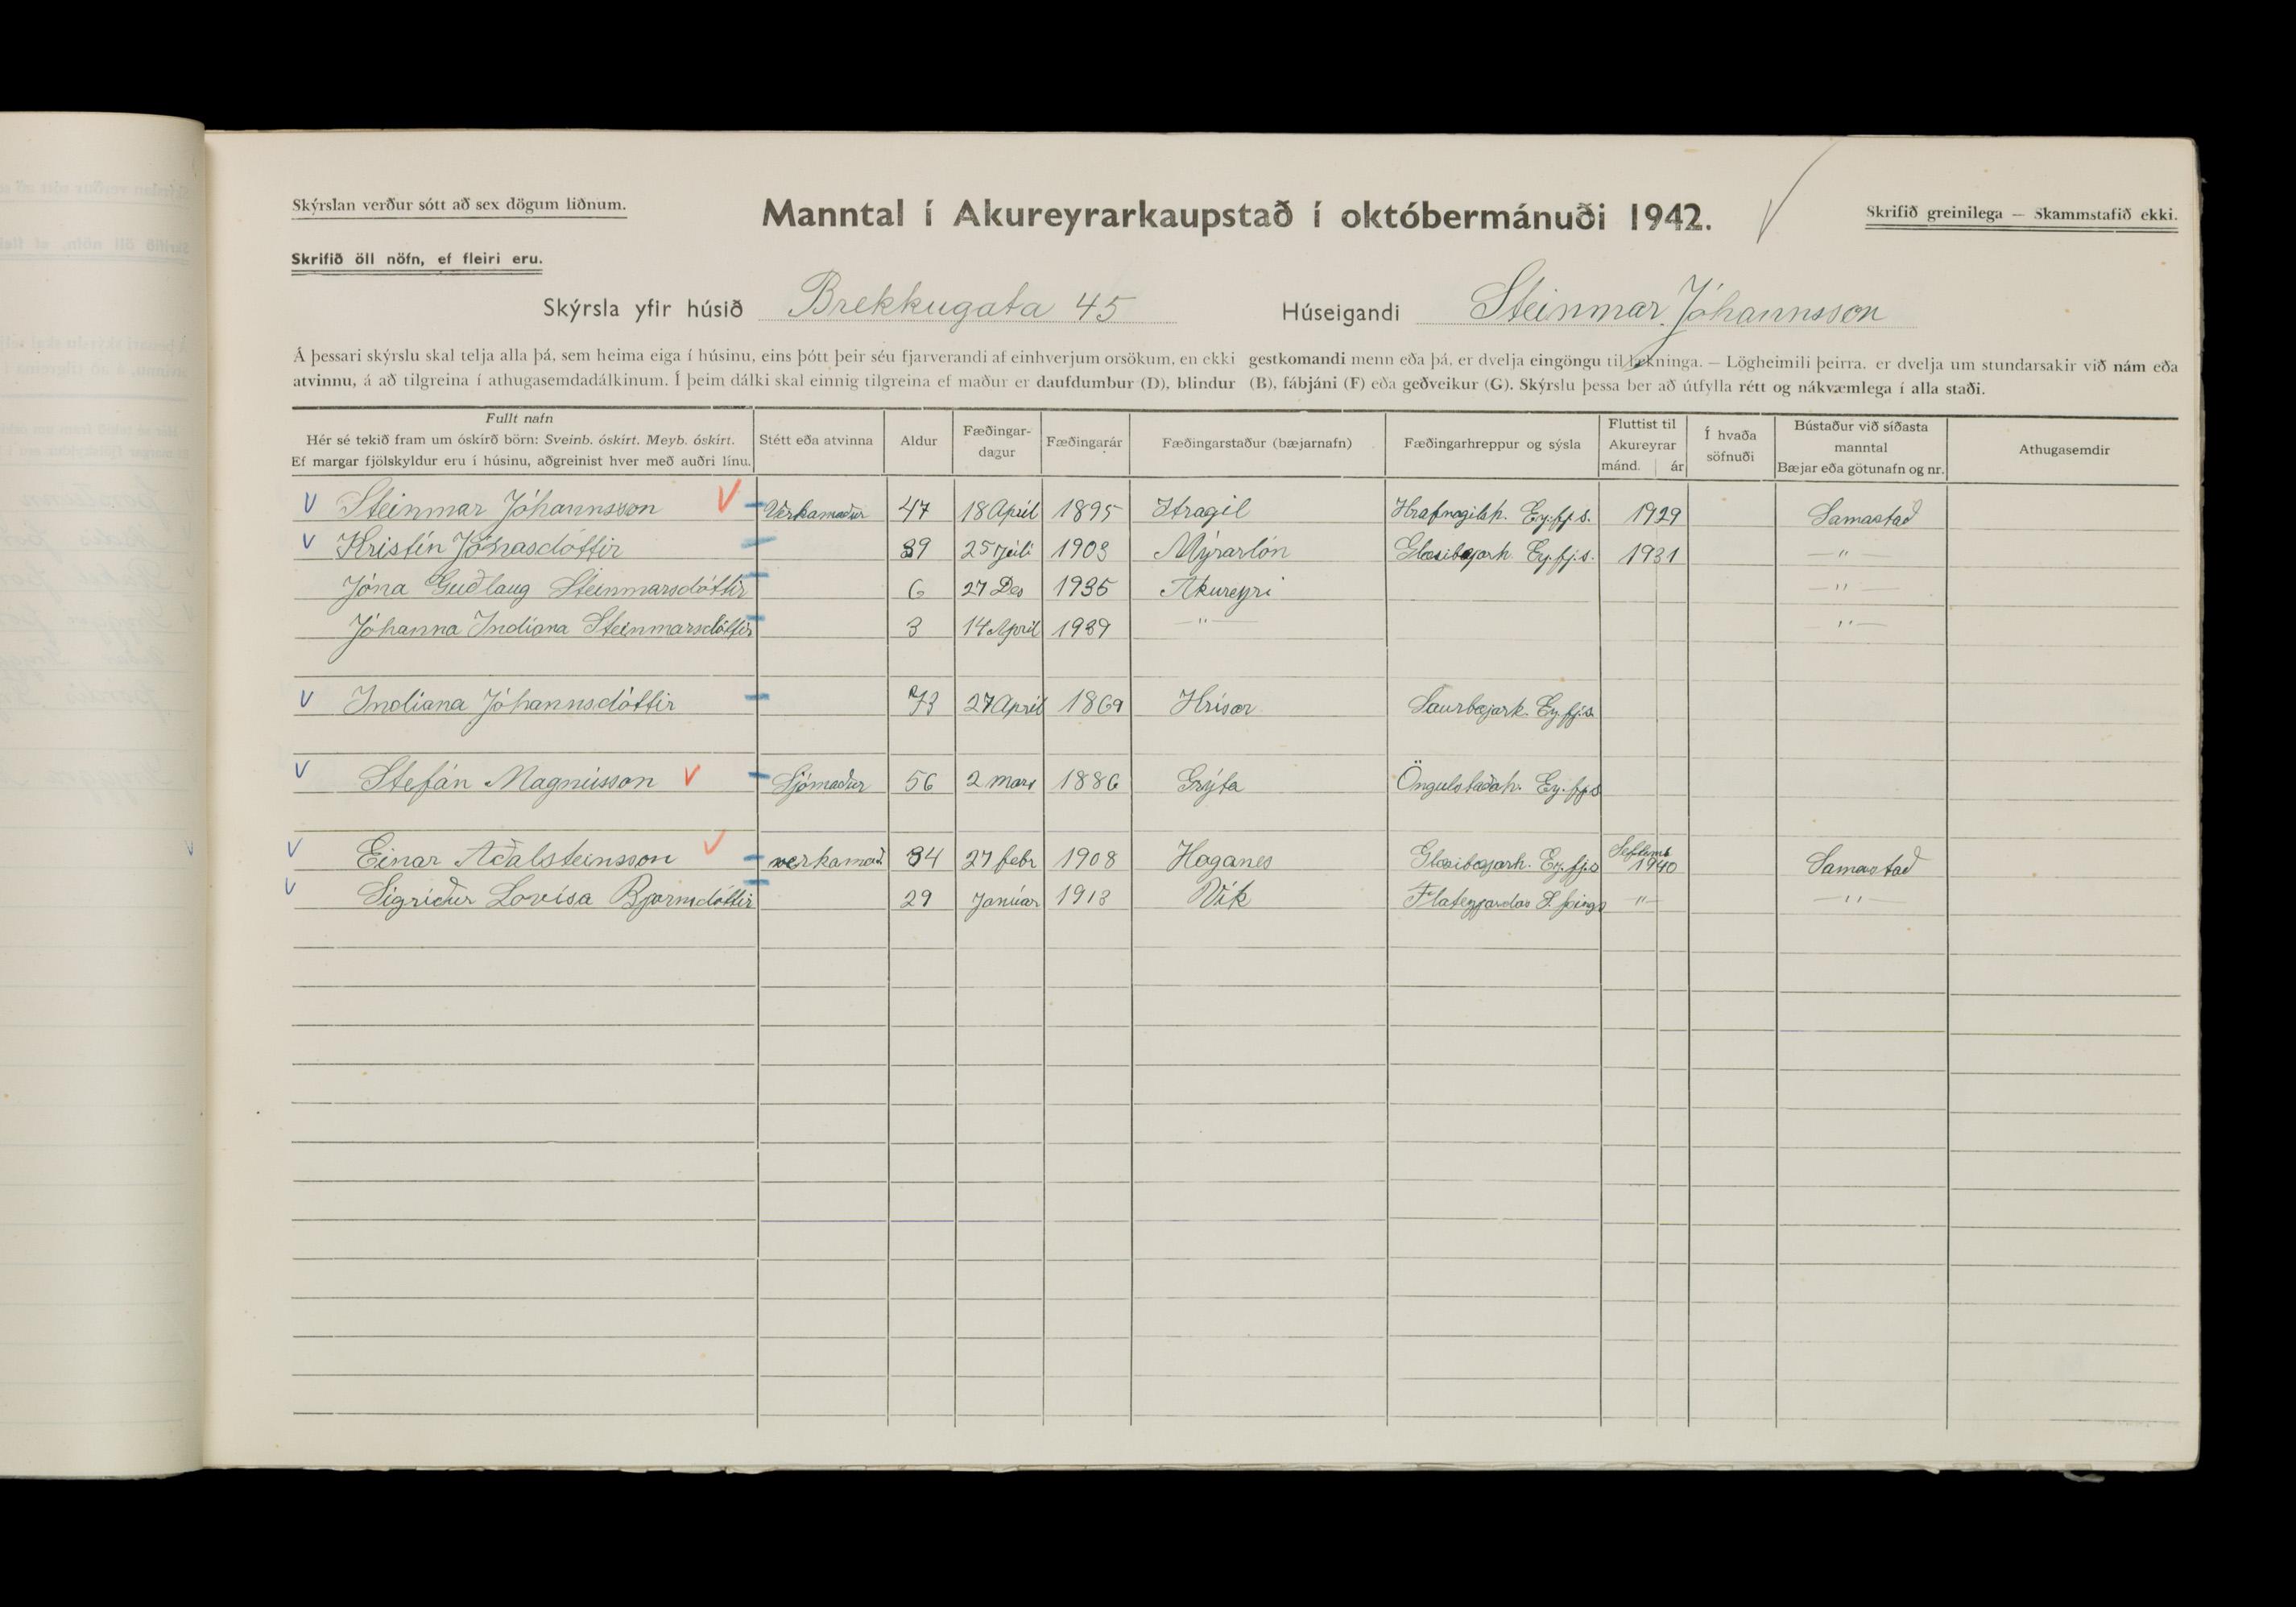 Skýrslan verður sótt að sex dögum liðnum.
Manntal í Akureyrarkaupstað í októbermánuði 1942.
Skrifið greinilega — Skammstafið ekki.
Skrifið öll nöfn, ef fleiri eru.
Skýrsla yfir húsið Brekkugata 45 Húseigandi Steinmar Jóhannsson
Á þessari skýrslu skal telja alla þá, sem heima eiga í húsinu, eins þótt þeir séu fjarverandi af einhverjum orsökum, en ekki gestkomandi menn eða þá, er dvelja eingöngu til lækninga. — Lögheimili þeirra, er dvelja um stundarsakir við nám eða
atvinnu, á að tilgreina í athugasemdadálkinum. Í þeim dálki skal einnig tilgreina ef maður er daufdumbur (D), blindur (B), fábjáni (F) eða geðveikur (G). Skýrslu þessa ber að útfylla rétt og nákvæmlega í alla staði.
Fullt nafn
Hér sé tekið fram um óskírð börn: Sveinb. óskírt. Meyb. óskírt.
Ef margar fjölskyldur eru í húsinu, aðgreinist hver með auðri línu.
Stétt eða atvinna
Aldur
Fæðingar-
dagur
Fæðingarár
Fæðingarstaður (bæjarnafn)
Fæðingarhreppur og sýsla
Fluttist til
Akureyrar
mánd. ár
Í hvaða
söfnuði
Bústaður við síðasta
manntal
Bæjar eða götunafn og nr.
Athugasemdir
Steinmar Jóhannsson Verkamaður 47 18 Apríl 1895 Hragil Hrafnagilsh. Ey.fj.s. 1929 Samastað
Kristín Jónasdóttir 39 25 Júlí 1903 Mýrarlón Glæsibæjarh. Ey.fj.s. 1931 — " —
Jóna Guðlaug Steinmarsdóttir 6 27 Des 1935 Akureyri — " —
Jóhanna Indíana Steinmarsdóttir 3 14 Apríl 1939 — " — — " —
Indíana Jóhannsdóttir 73 27 Apríl 1869 Hrísar Saurbæjarh. Ey.fj.s.
Stefán Magnússon Sjómaður 56 2 mars 1886 Grýta Öngulstaðah. Ey.fj.s
Einar Aðalsteinsson verkamað 34 27 febr 1908 Haganes Glæsibæjarh. Ey.fj.s Septemb 1940 Samastað
Sigríður Lovísa Bjarnadóttir 29 Janúar 1913 Vík Flateyjardas S. þings — " — — " —